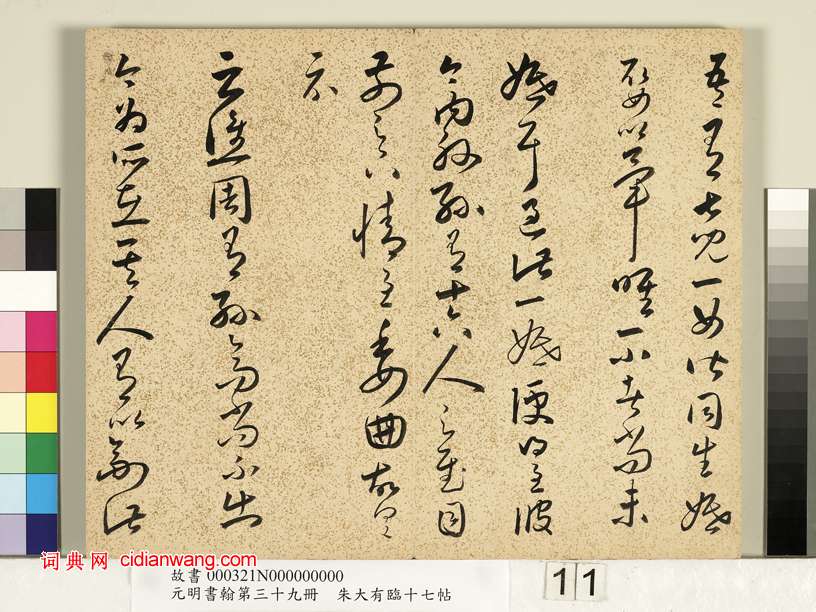 吾有七兒一女皆同生婚
娶以畢唯一小者尚未
婚耳過此一婚便得至彼
今內外孫有十六人足慰目
前足下情至委曲故具
示
云譙周有孫高尚不出
今為所在其人有以副此
词典网 cidianwang.com
故書 000321N000000000
元明書翰第三十九冊 朱大有臨十七帖
11